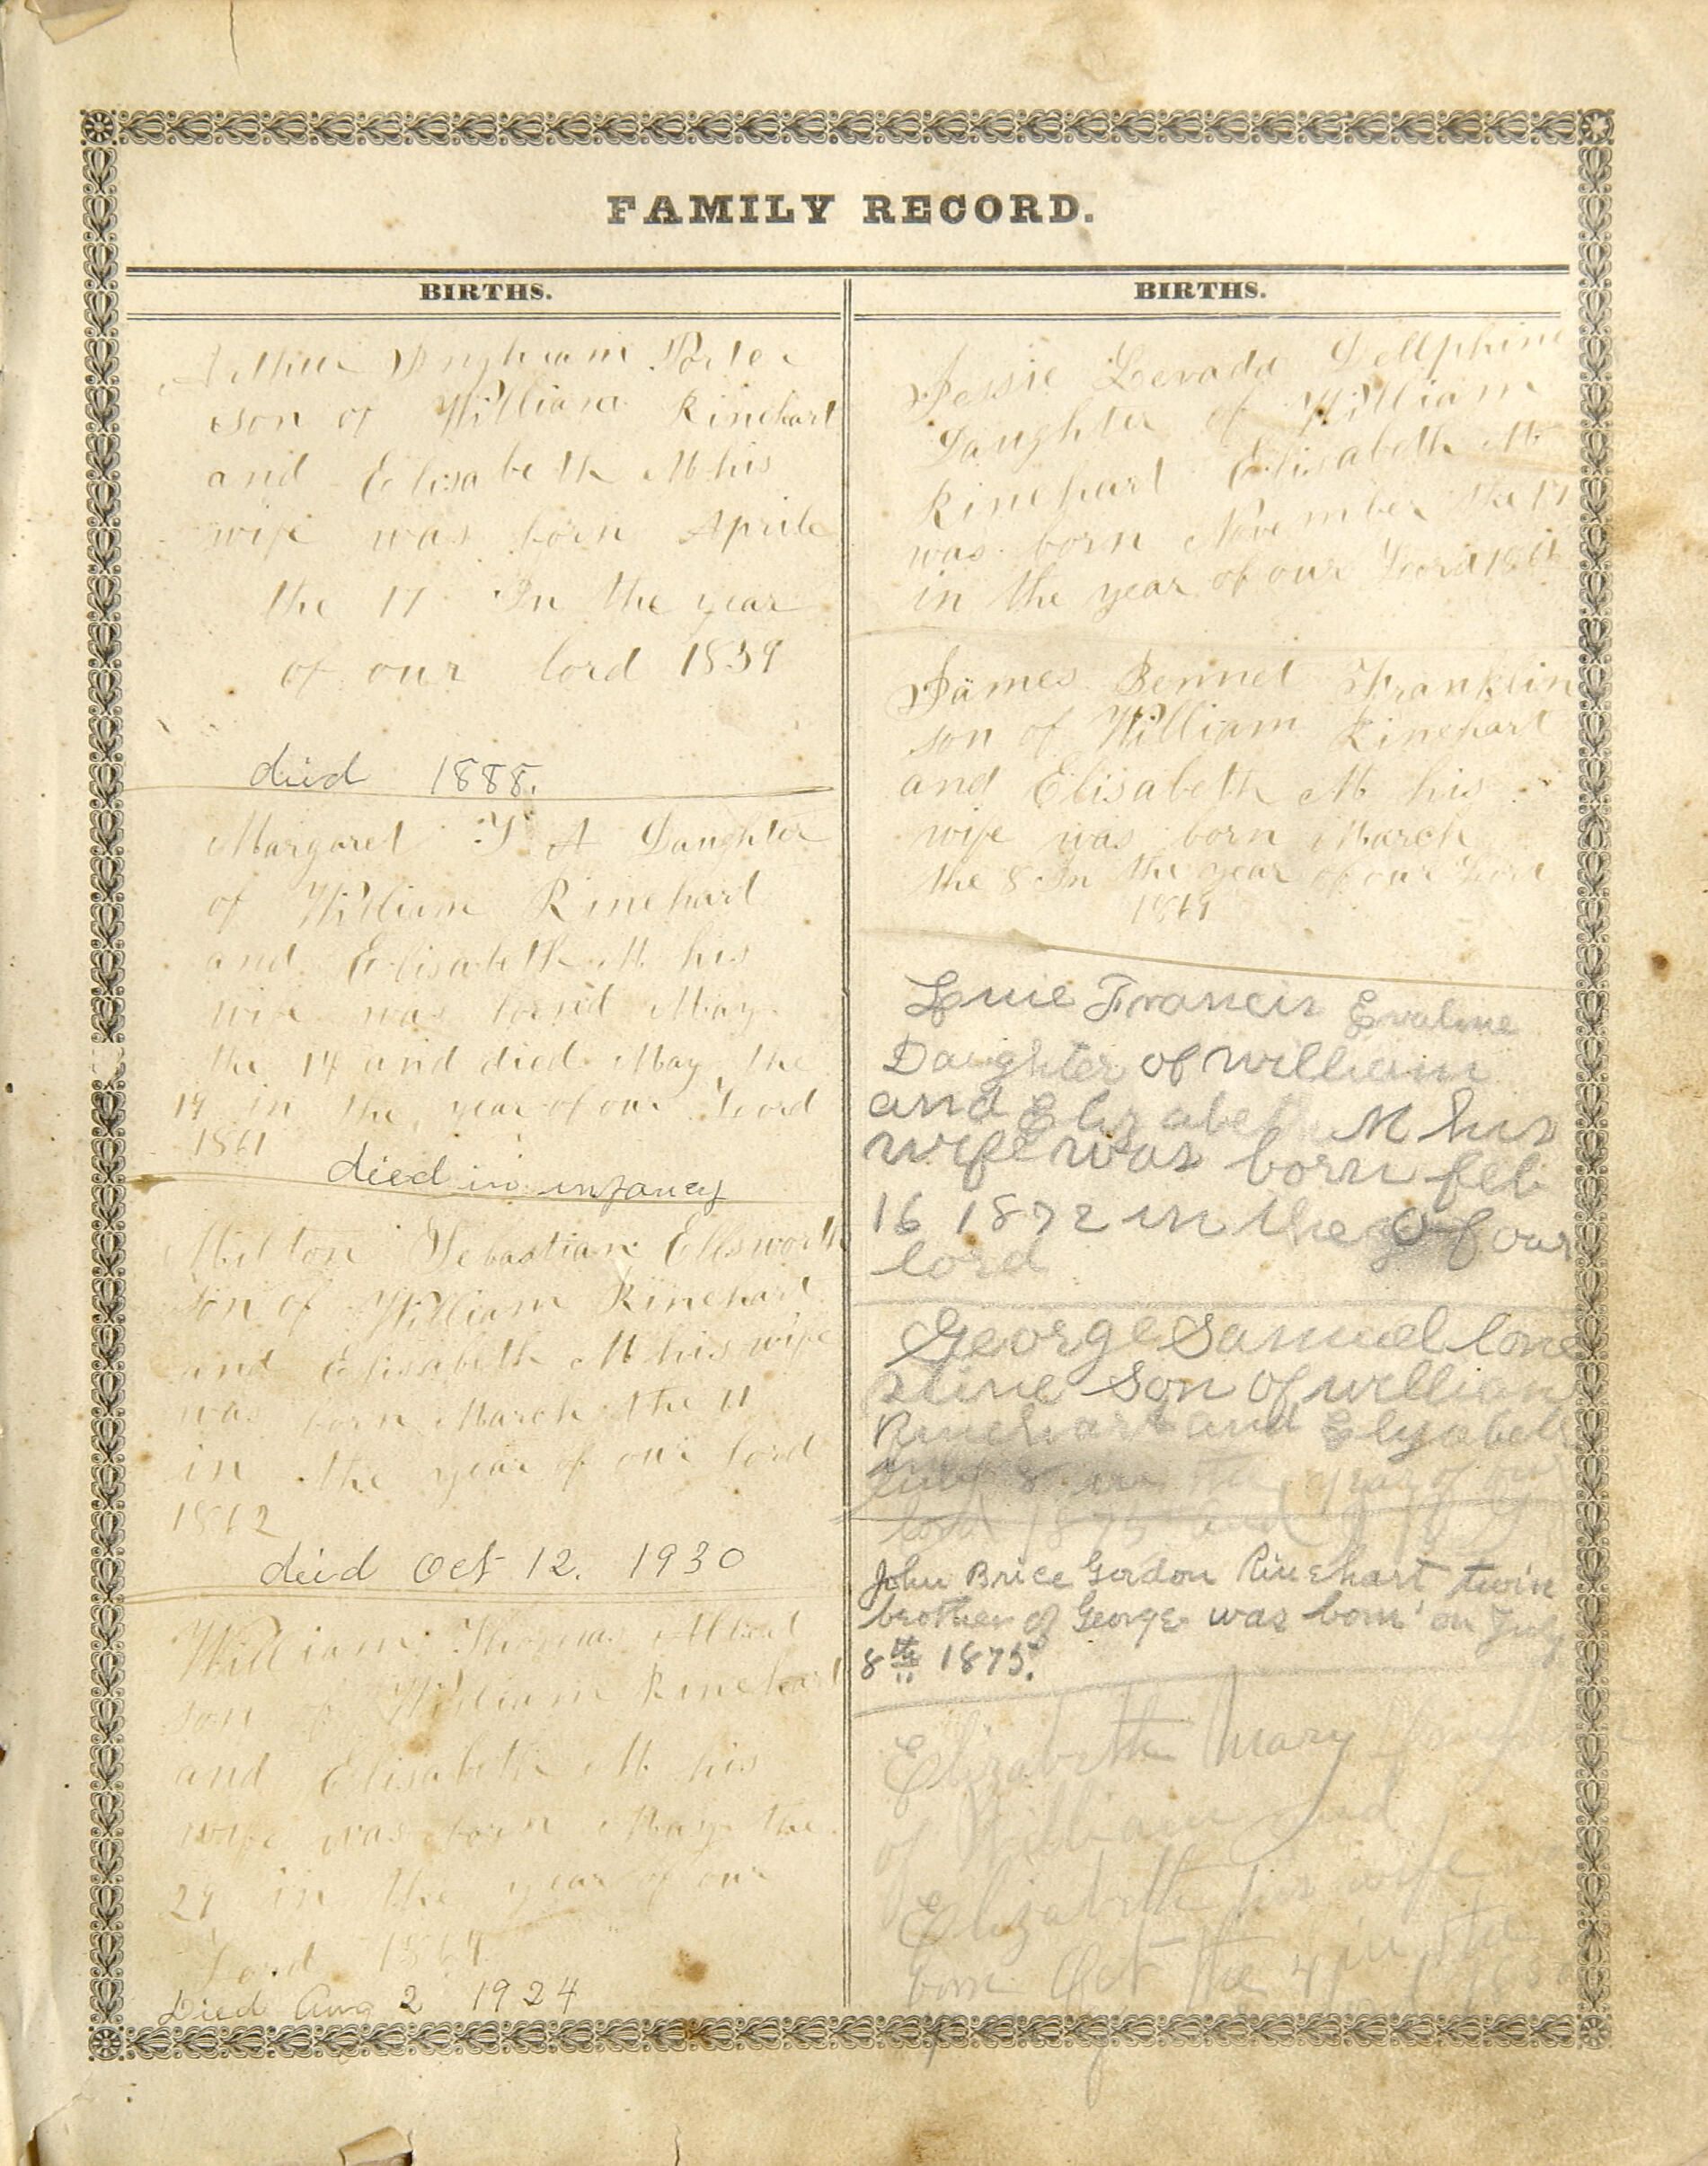 FAMILY RECORD.
BIRTHS.
Arthur Inghram Porter
son of William Rinehart
and Elisabeth M his
wife was born Aprile
the 17 In the year
of our lord 1859
died 1888.
Margaret T A Daughter
of William Rinehart
and Elisabeth M his
wife was bornd May
the 14 and died May the
19 in the year of our Lord
1861
died in infancy
Milton Sebastian Ellsworth
son of William Rinehart
and Elisabeth M his wife
was born March the 11
in the year of our lord
1862
died Oct 12. 1930
William Thomas Albert
son of William Rinehart
and Elisabeth M his
wife was born May the
29 in the year of our
Lord 1864
Died Aug 2 1924
BIRTHS.
Jessie Levada Dellphine
Daughter of William
Rinehart Elisabeth M
was born November the 17
in the year of our Lord 1866
James Bennet Franklin
son of William Rinehart
and Elisabeth M his
wife was born March
the 8 In the year of our Lord
1869
Francis Evaline
Daughter of William
and Elizabeth M his
wife was born feb
16 1872 in the of our
lord
George Samuel
stine Son of william
Rinehart and Elyabeth
July 8 in the year of our
lord 1875 and
John Brice Gordon Rinehart twin
brother of George was born on July
8th 1875.
Elizabeth Mary
of William and
Elizabeth his wife
born Oct the 4 in the